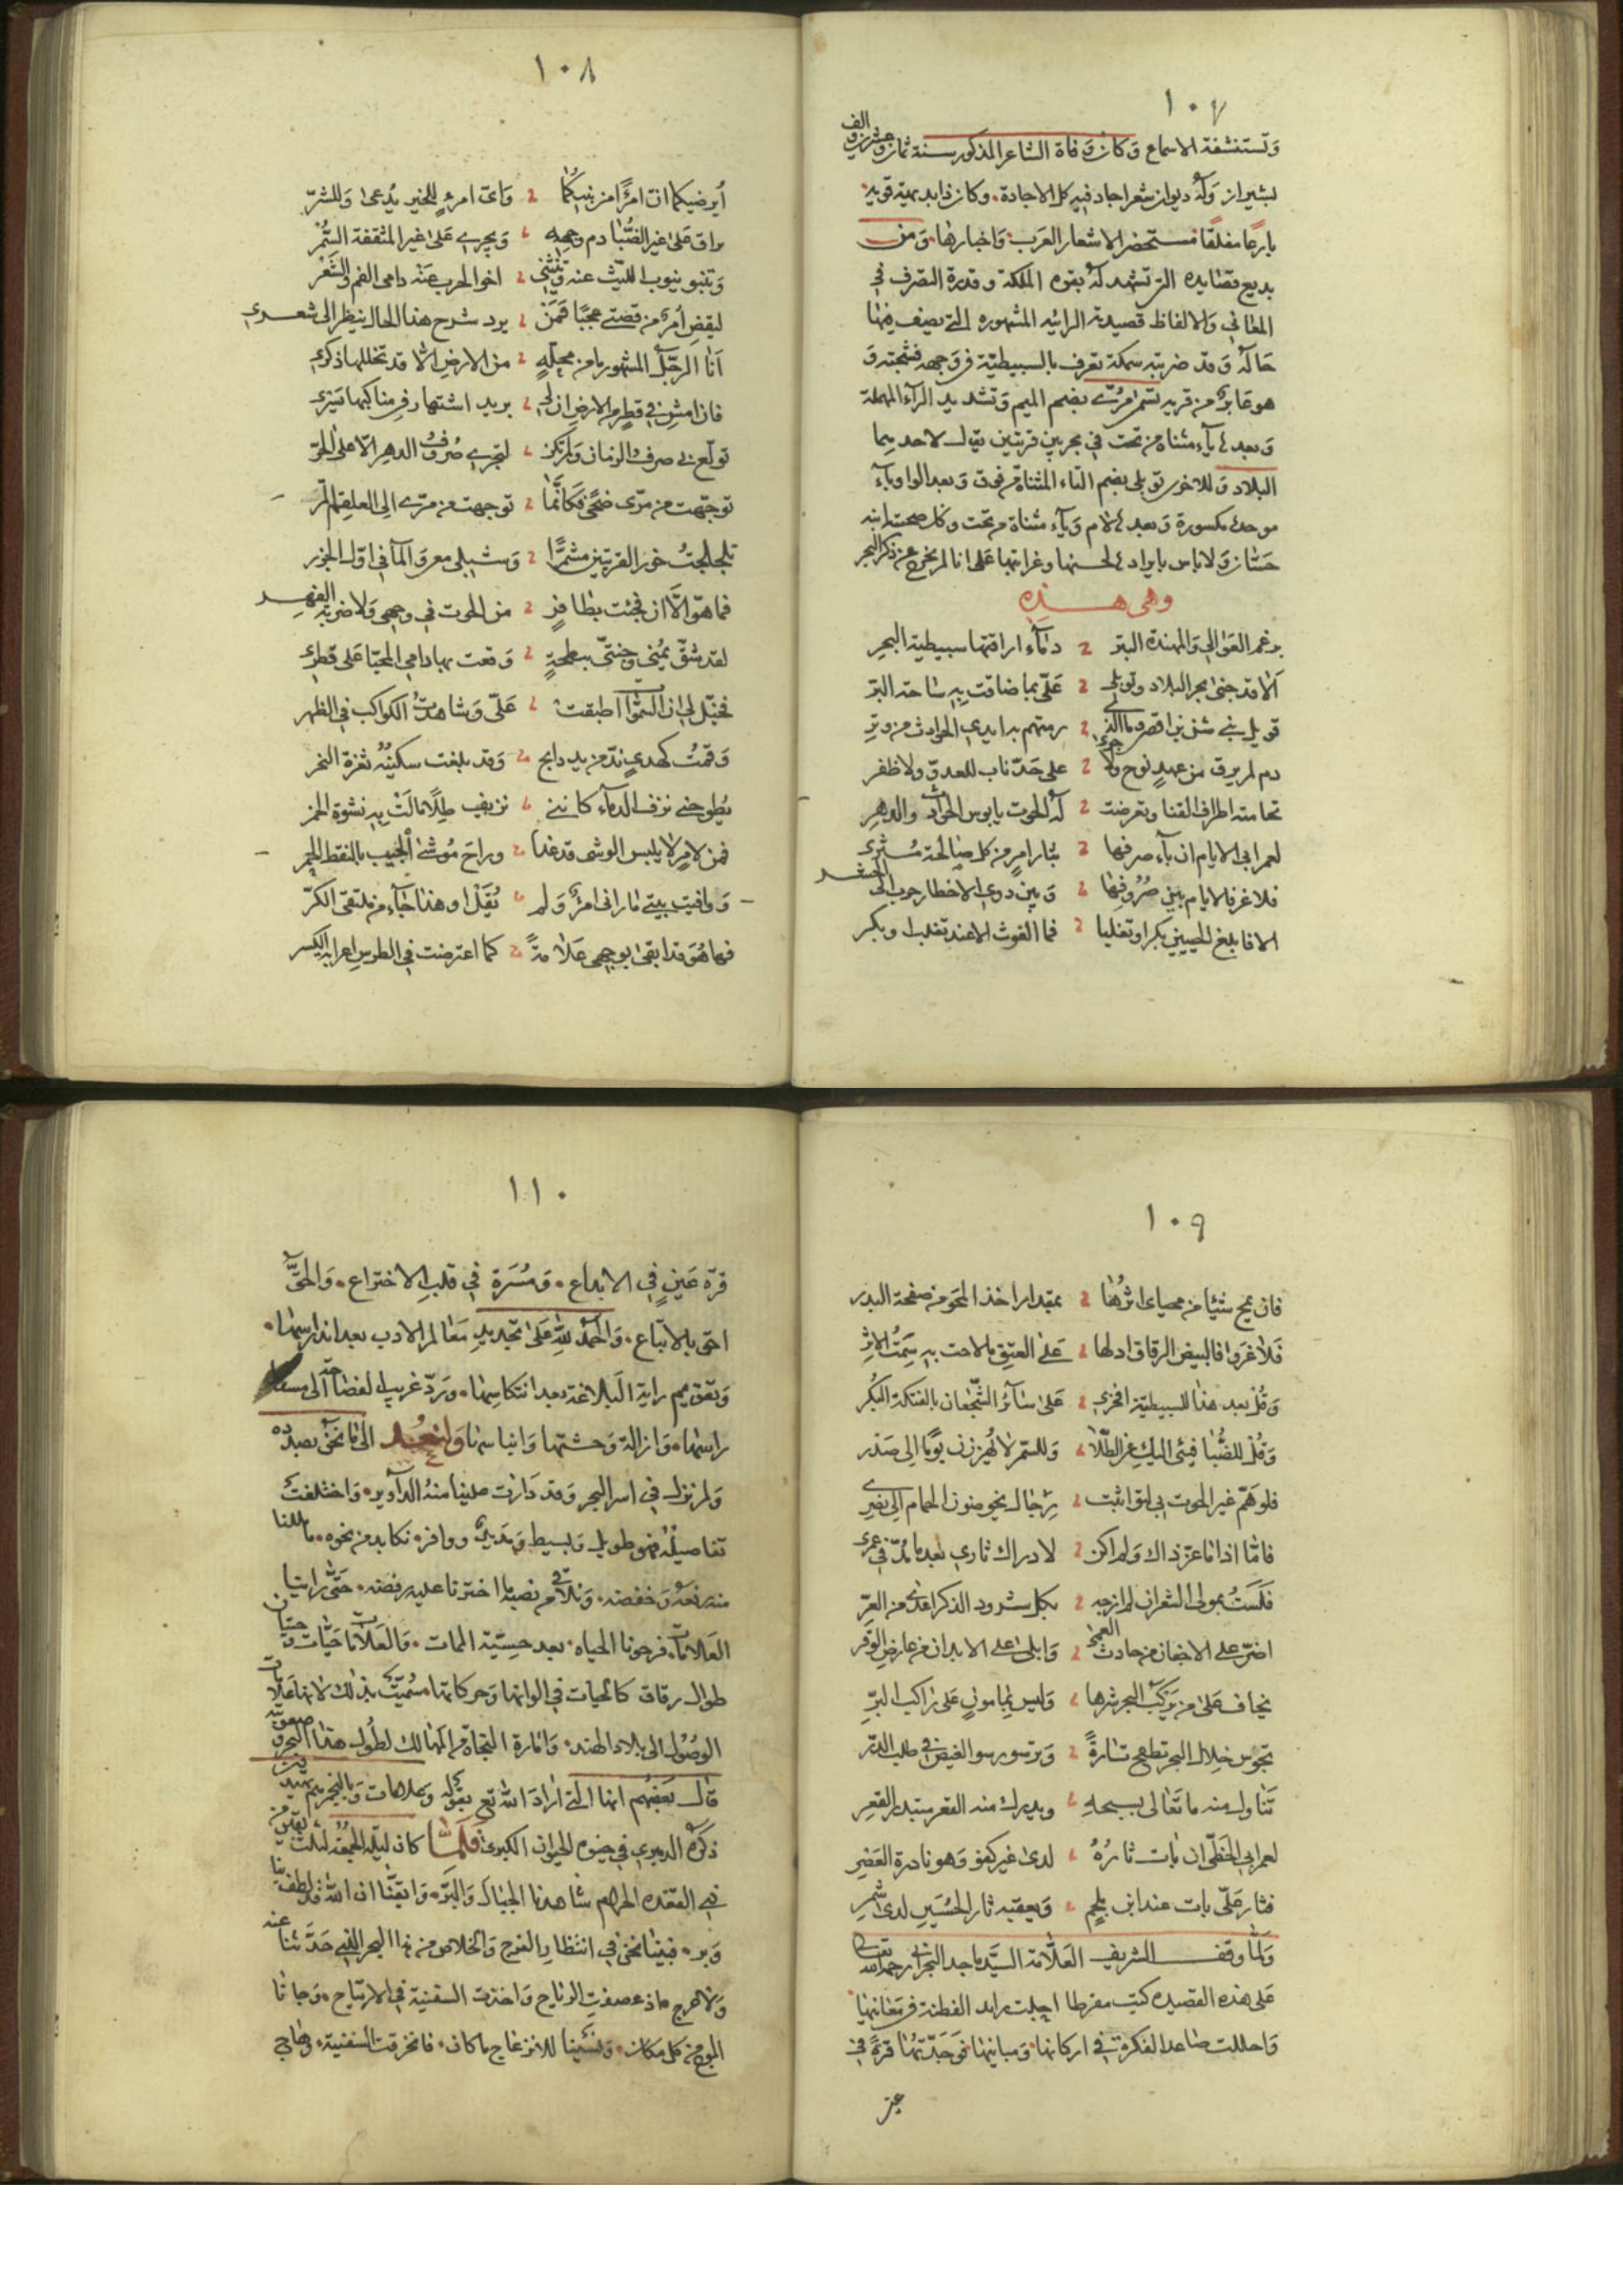 ١٠٧
وتستنشقة الاسماع وكانت وفاة الشاعر المذكور سنة ثمان وعشرين والف
بشيراز وله ديوان شعر اجاد فيه كل الاجادة وكان ذا بديهة قوية
بارعا مفلقا مستحضر الاشعار العرب واخبارها ومن
بديع قصايده التي تشهد له بقوة الملكة وقدرة التصرف في
المعاني والالفاظ قصيدته الرائية المشهورة التي يصف فيها
حاله وقد ضربته سمكة تعرف بالسبيطية في وجهه فشجته و
هو عابر من قرية تسمى مرّي بضم الميم وتشديد الرآء المهملة
وبعدها يآء مثناة من تحت في بحر بين قريتين يقال لاحديهما
البلاد وللاخرى توبلي بضم التاء المثناة من فوق وبعد الواو باء
موحدة مكسورة وبعدها لام وياء مثناة من تحت وكان صحبته ابنه
حسّان ولا باس بايرادها لحسنها وغرابتها على انا لم نخرج عن ذكر البحر
وهي هذه
برغم العوالي والمهندة البتر دمآء اراقتها سبيطية البحر
الا قد جنى بحر البلاد وتوبلي عليّ بما ضاقت به ساحة البرّ
فويل بني شن بن اقصى وما الذي رمتهم به ايدي الحوادث من وتر
دم لم يرق من عهد نوح ولا جرى على حدّ ناب للعدوّ ولا ظفر
تحامته اطراف القنا وتعرضت له الحوت يا بوس الحوادث والدهر
لعمر ابي الايام ان بآء صرفها بثار امرء من كل صالحة مثري
فلا غرو فالايام بين صروفها وبين ذوي الاخطار حرب الى الحشر
الا فابلغ الحيين بكرا وتغلبا فما الغوث الا عند تغلب او بكر
١٠٨
أيرضيكما ان امرًأ من بنيكما واىّ امرء للخير يُدعى وللشرّ
يراق على غير الظُّبا دم وجهه ويجري على غير المثقفة السُّمْر
وتنبو نيوب الليث عنه وينثني اخو الحرب عنه دامي الفم والثغر
ليقضِ امرؤ من قصتي عجبًا فمَنْ يرد شرح هذا الحال ينظر الى شعري
أنا الرجل المشهور ما من محلّةٍ من الارض الّا قد تخللها ذكري
فان امشِ في قطر من الارض ان لي بريد اشتهار في مناكبها يسري
تولّع بي صرف الزمان ولم تكن لتجري صُروف الدهر الّا على الحرّ
توجّهت من مرّى ضحًى فكأنّما توجهت من مرّي الى العلقم المرّ
تلجلجتُ خور القريتين مشمّرًا وشبلي معي والمآ في اوّل الجزر
فما هو الّا ان فجئت بطافر من الحوت في وجهي ولا ضربة الفهر
لقد شقّ يُمنى وجنتيّ بنطحةٍ وقعت بها دامي المحيّا على قطري
فخيّل لي انّ السّموات اطبقت عليّ وشاهدتُ الكواكب في الظهر
وقمتُ كهديٍ ندّ من يد ذابح وقد بلغت سكينُهُ ثغرة النحر
يُطوحني نزف الدمآء كانني نزيف طِلًا مالَتْ به نشوة الخمر
فمن لامرٍ لا يلبس الوشى قد غدا وراحَ مُوشّى الجيب بالنقط الحمر
ووافيت بيتي ما راني امرؤ ولم يُقَلْ او هذا جآء من ملتقى الكرّ
فها هو قد ابقى بوجهي علامةً كما اعترضت في الطرس اعرابة الكسر
١٠٩
فان يمح شيئا من محياى اثرُها بمقدار اخذ المحو من صفحة البدر
فلا غروا فالبيض الرقاق ادلها على العتق ما لاحت به سِمَتُ الاثر
وقُلْ بعد هذا للسبيطيّة افخري على سآئر الشّجعان بالفتكة البكر
وقُلْ للظُّبا فيئى اليك عن الطّلا وللسّمر لا تهززن يومًا الى صدر
فلو همّ غير الحوت بي لتوا ثبت رجال يخوضون الحمام الى نصري
فامّا اذا ما عزّ ذاك ولم اكن لادراك ثاري بعد ما مُدّ في عمري
فلَستُ بمولى الشعر ان لم ازجه بكل شرود الذكر اعدى من العرّ
اضرّ على الاجفان من حادث العمى وابلى على الابدان من عارض الوقر
يخاف على من يركب البحر شرها وليس بمامونٍ على راكب البرّ
تجوس خلال البحر تطفح تارةً وترسو رسو الغيص في طلب الدّر
تناول منه ما تعالى بسبحه ويدرك منه القعر مبتدر القعر
لعمر ابي الخطّى ان بات ثارُهُ لدى غير كفو وهو نادرة العصر
فثار عليّ بات عند ابن ملجم ويعقبه ثار الحُسَين لدى شمر
ولمّا وقف الشريف العلّامة السيّد ماجد البحراني رحمه الله تعالى
على هذه القصيده كتب مقرظا اجلت رايد الفطنة في معانيها
واحللت صاعد الفكرة في اركانها ومبانيها فوجدتّها قرة في
عين
١١٠
قرّة عين في الابداع ومُسَرة في قلب الاختراع والحقّ
احق بالاتّباع والحمد لله على تجديد معالم الادب بعد اندراسها
وتقويم راية البلاغة بعد انتكاسها وردّ غريب الفضاحة الى مسقط
راسها وازالة وحشتها وايناسها ولنعد الى ما نحن بصدده
ولم نزل في اسر البحر وقد دارت علينا منهُ الدآوير واختلفت
تفاصيلُه فهو طويل وبسيط ومَديد ووافر نكابد من نحوه ما للنا
منه رفعه وخفضه ونلاقي من نصبه ما اخترنا عليه رفضه حتى راينا
العلامات فرجونا الحياه بعد حسيّة الممات والعلامات حيّات حيتان
طوال رقاق كالحيات في الوانها وحركاتها سُميّت بذلك لانها علامات
الوصُول الى بلاد الهند وامارة النجاة من المهالك لطُول هذا البحر وصعوبته
قال بَعضُهم انها التي ارادَ الله تع بقوله وعلامات وبالنجم هم يهتدون
ذكرَه الدميري في حيوة الحيوان الكبرى فلمّا كان ليلة الجمعة لثلث بقين من
ذي القعده الحرام شاهدنا الجبال والبرّ وايقنّا ان الله قد لطف بنا
وبر فبينا نحن في انتظار الفرج والخلاص من هذا البحر الذي حدّثنا عنه
ولا حرج اذ عصفتِ الرياح واخذت السفينة في الارتياح وجاءنا
الموج من كل مكان ونسينا للانزعاج ما كان فانخرقت السفينة وهاجي